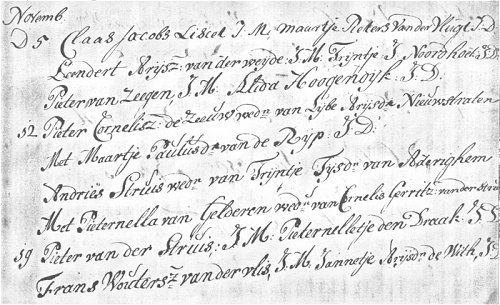 Novemb.
D 5 Claas Jacobs J. M, maartje Pieters Van der Vlugt J.D.
Leendert Arijsz: van der weyde: J:M: Trijntje J, Noordhoek: J:D:
Pieter van Zeegen, J, M: Alida Hoogendijk: J:D:
12 Pieter Cornelisz: de Zeeuw wedr van Lijbe Arijsdr Nieuwstraten
Met Maartje Paulusdr van de Ryp: J:D:
Andries Struis wedr van Trijntje Tysdr van Aderighem
Met Pieternella van Gelderen wedu van Cornelis Gerritz: vander
19 Pieter van der Struis: J: M: Pieternelletje den Draak: J:D
Frans Woutersz van der vlis J, M, Jannetje Arijsdr de With, J:D